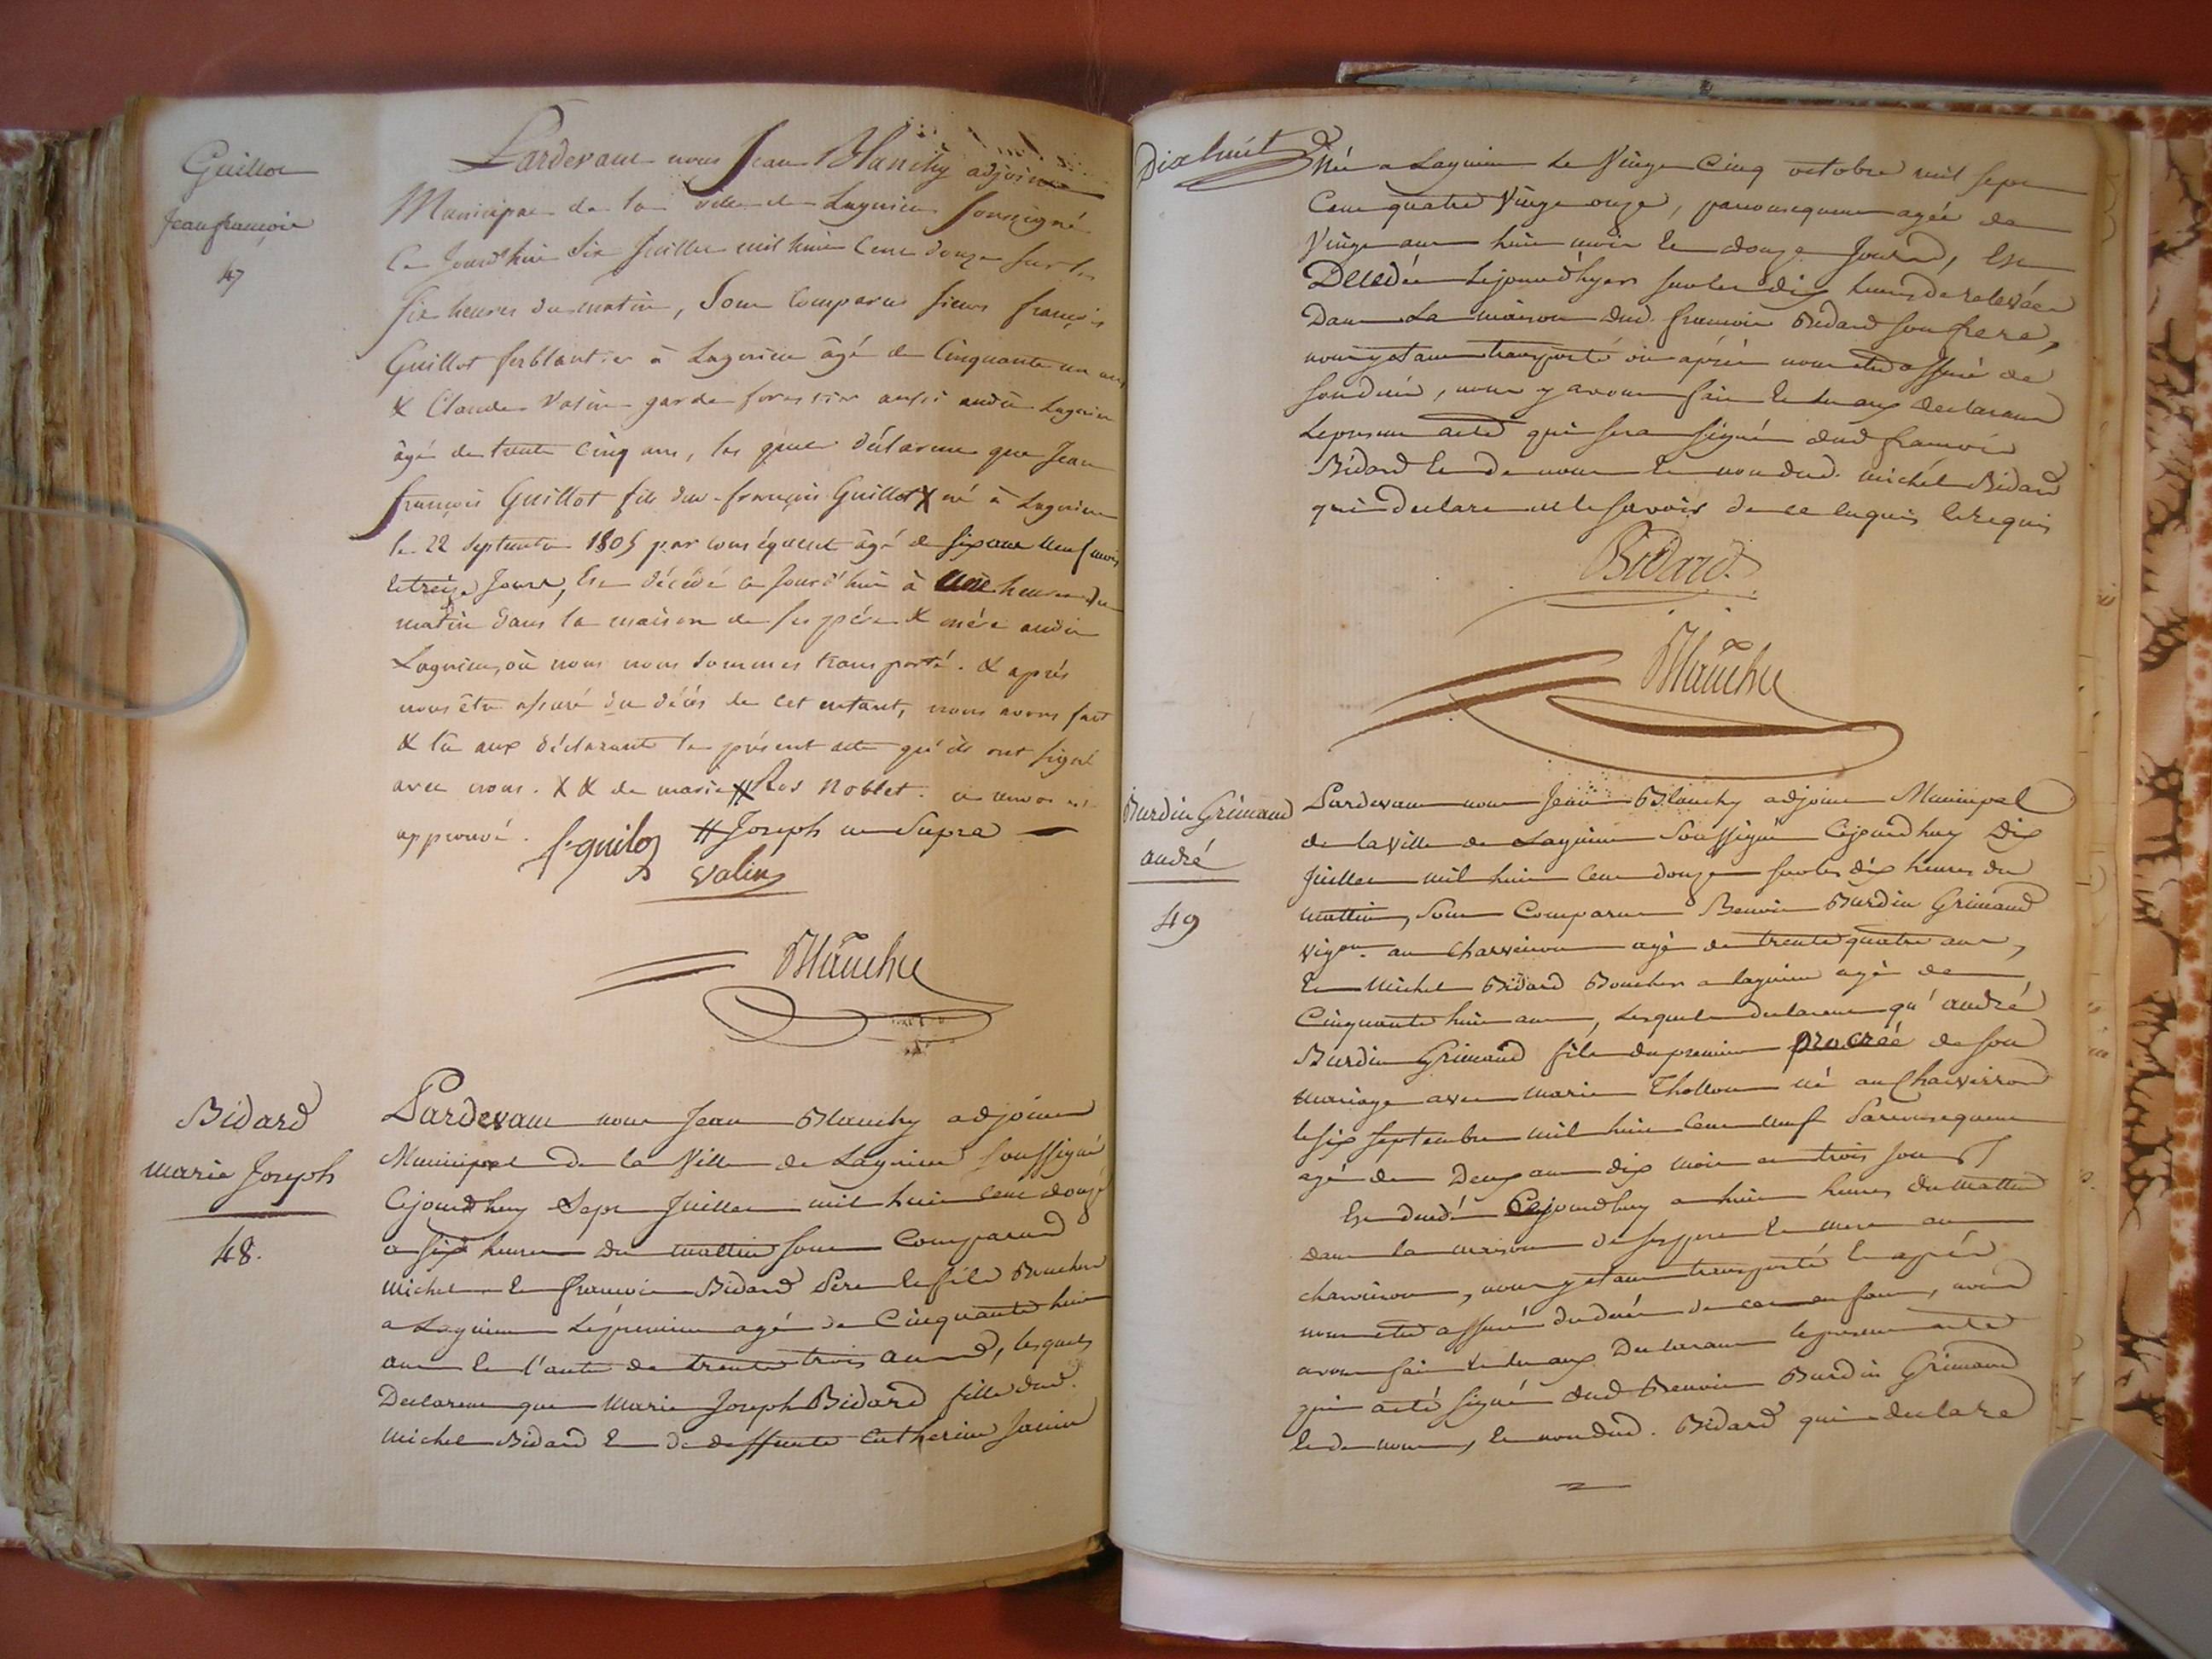 Guillot
Jean françois
47
Pardevant nous Jean Blanchy adjoint
Municipal de la ville de Lagnieu soussigné
Ce Jourd'hui Six Juillet mil huit Cent douze sur les
six heures du matin, Sont Comparus sieurs françois
Guillot ferblantier à Lagnieu âgé de Cinquante un ans
& Claude Valin garde forestier aussi audit Lagnieu
âgé de trente Cinq ans, les quels déclarent que Jean
françois Guillot fils dud. françois Guillot X né à Lagnieu
le 22 Septembre 1805 par conséquent âgé de six ans neuf mois
et treize Jours, Est décédé ce Jourd'hui à une heure du
matin dans la maison de ses père & mère audit
Lagnieu, où nous nous sommes transporté. & après
nous être assuré du décès de cet enfant, nous avons fait
& lû aux déclarants le présent acte qu'ils ont signé
avec nous. X & de marie # Ros Noblet. ce renvoi est
approuvé. # Joseph ut Supra
f. guilot
valin
Blanchy
Bidard
marie Joseph
48.
Pardevant nous Jean Blanchy adjoint
Municipal de la Ville de Lagnieu soussigné
Cejourdhuy Sept Juillet mil huit cent douze
a six heures du mattin sont Comparus
Michel et françois Bidard Pere et fils Boucher
a Lagnieu le premier agé de Cinquante huit
ans et l'autre de trente trois ans, lesquels
Declarent que Marie Joseph Bidard fille dud.
Michel Bidard et de deffunte Catherine Janin
Dix huit
Née a Lagnieu le Vingt Cinq octobre mil sept
Cent quatre Vingt onze, parconsequent agée de
Vingt ans huit mois et douze Jours, Est
Decedée le jourd'hyer sur les dix heures de relevée
Dans la maison dud. françois Bidard son frere,
nous y etant transporté où après nous etre assuré de
son décès, nous y avons fait et lu aux declarans
le present acte qui sera signé dud françois
Bidard et de nous et non dud. michel Bidard
qui Declare ne le savoir de ce enquis et requis
Bidard
Blanchy
Burdin Grimaud
andré
49
Pardevant nous Jean Blanchy adjoint Municipal
de la Ville de Lagnieu Soussigné Cejourdhuy Dix
Juillet mil huit Cent douze sur les dix heures du
mattin, Sont Comparus Benoit Burdin Grimaud
vigon. au Charveiron agé de trente quatre ans,
et Michel Bidard Boucher a Lagnieu agé de
Cinquante huit ans, lesquels declarent qu'andré
Burdin Grimaud fils du premier procréé de son
mariage avec marie Thollon né au Charveiron
le six septembre mil huit Cent neuf Parconsequent
agé de Deux ans dix mois et trois Jours
Est decedé Cejourdhuy a huit heures du mattin
dans la maison de ses pere et mere au
charveiron, nous y etant transporté et après
nous etre assuré du decés de cet enfant, nous
avons fait et lu aux Declarans le present acte
qui a eté signé dud Benoit Burdin Grimaud
et de nous, et non dud. Bidard qui declare